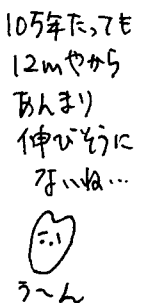 10万年たっても
12mやから
あんまり
伸びそうに
ないね…
う〜ん